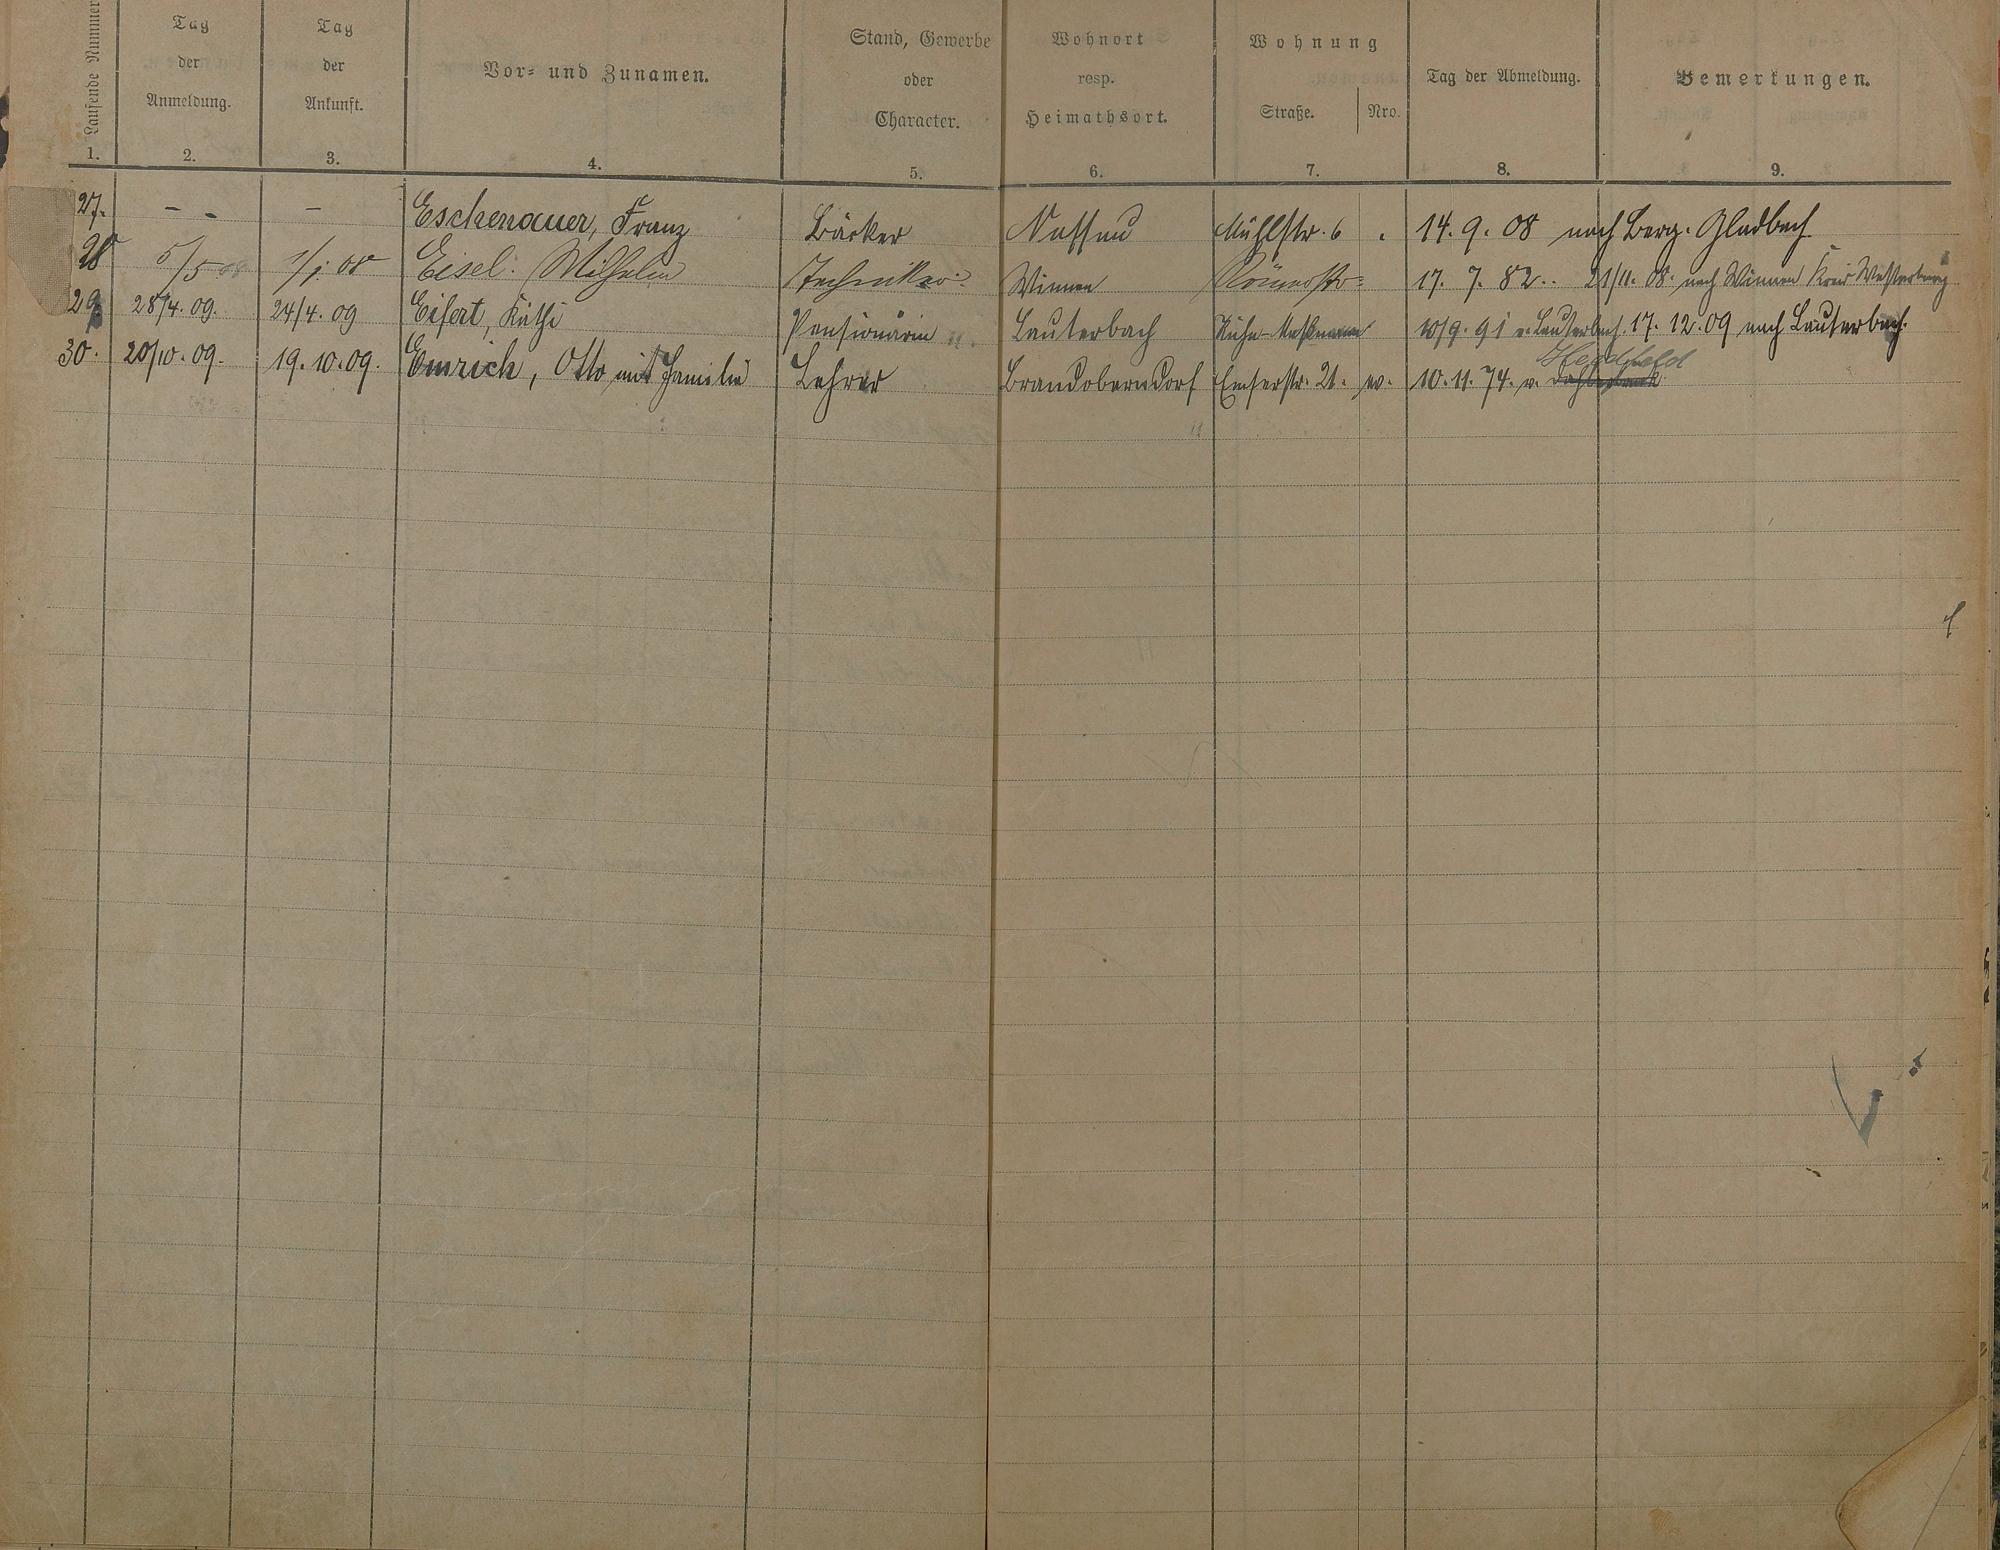 Laufende Nummer
Tag der Anmeldung.
Tag der Ankunft.
Vor- und Zunamen.
Stand, Gewerbe oder Character.
Wohnort resp. Heimathsort.
Wohnung
Straße. Nro.
Tag der Abmeldung.
Bemerkungen.
1. 2. 3. 4. 5. 6. 7. 8. 9.
27. - - - Eschenauer, Franz Bäcker Nassau Mühlstr. 6 . 14. 9. 08 nach Berg. Gladbach
28 5/5 08 1/1 08 Eisel. Wilhelm Techniker Winnen Römerstr. 17. 7. 82. 21/11. 08. nach Winnen Kreis Westerburg
29 28/4. 09. 24/4. 09 Eifert, Käthi Pensionärin Lauterbach 10/9. 91 v. Lauterbach. 17. 12. 09 nach Lauterbach.
30. 20/10. 09. 19. 10. 09. Emrich, Otto mit Familie Lehrer Brandoberndorf Emserstr. 21. ev. 10. 11. 74. v.